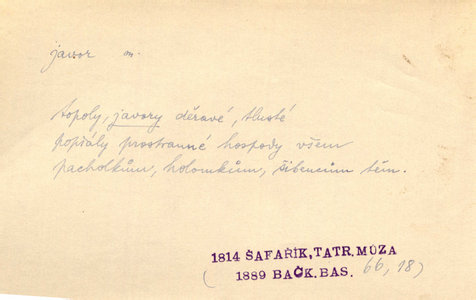 javor m.
topoly, javory děravé, tlusté
popřály prostranné hospody všem
pacholkům, holomkům, šibencům těm.
1814 ŠAFAŘÍK, TATR. MÚZA
( 1889 BAČK. BAS. 66, 18)